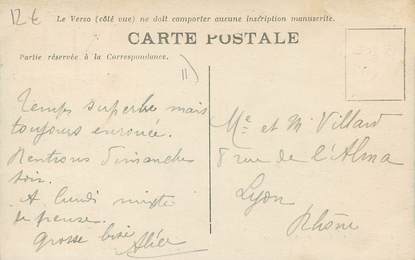 12€
Le Verso (côté vue) ne doit comporter aucune inscription manuscrite.
CARTE POSTALE
Partie réservée à la Correspondance.
Temps superbe mais
toujours enrouée.
Rentrons Dimanche
soir.
A lundi
grosse bise
Me et Mr Villard
8 rue de l'Alma
Lyon
Rhône